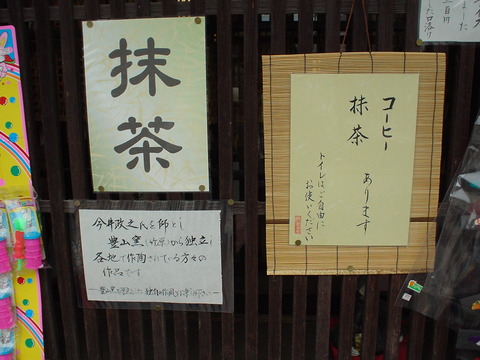 抹
茶
コーヒー
抹茶
あります
トイレはご自由に
お使いください
今井政之氏を師とし
豊山窯(竹原)から独立し
各地で作陶されている方々の
作品です